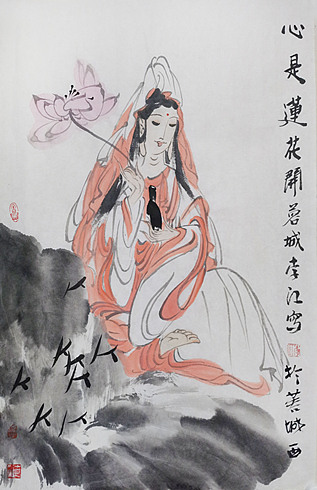 心是蓮花開蓉城李江寫於蓉城西